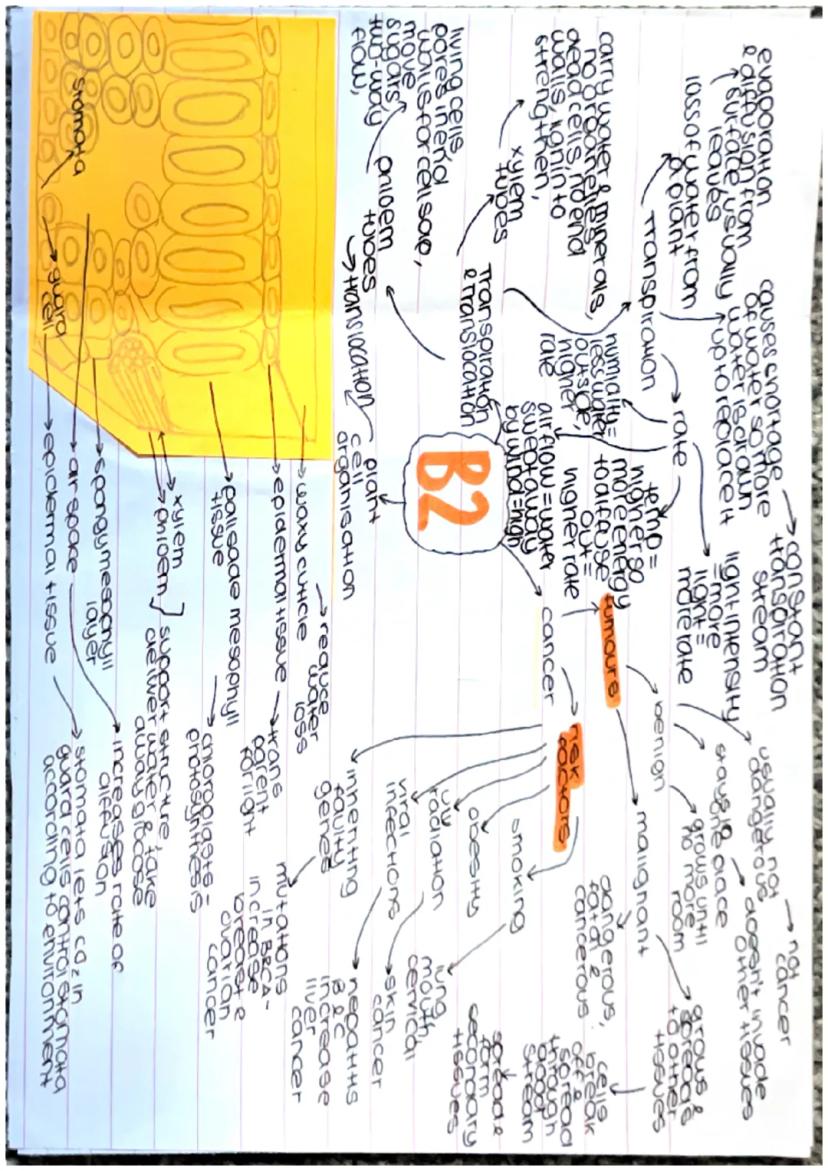 B2
Transpiration
& translocation
Transpiration
loss of water from
a plant
evaporation
& diffusion from
surface, usually
leaves
causes shortage
of water so more
water is drawn
up to replace it
constant
transpiration
stream
rate
light intensity
= more
light =
more rate
temp =
higher so
more energy
to diffuse
out =
higher rate
humidity =
less water
outside,
higher
rate
airflow = water
swept away
by wind = high
xylem
tubes
carry water & minerals
no organelles,
dead cells, no end
walls, lignin to
strengthen,
phloem
tubes
living cells
pores in end
walls for cell sap,
sugars
move
two-way
flow,
translocation
cancer
tumours
benign
usually not
dangerous
not
cancer
stays in
one place
doesn't invade
other tissues
grows until
no more
room
malignant
dangerous,
fatal &
cancerous
grows &
spreads
to other
tissues
cells
break
off &
spread
through
blood
stream
spread &
form
secondary
tissues
risk
factors
smoking
lung
mouth,
cervical
obesity
uv
radiation
skin
cancer
viral
infections
hepatitis
B & C
increase
liver
cancer
inheriting
faulty
genes
mutations
in BRCA -
increase
breast &
ovarian
cancer
plant
cell
organisation
waxy cuticle
reduce
water
loss
epidermal tissue
trans
parent
for light
palisade mesophyll
tissue
chloroplasts =
photosynthesis
xylem
phloem
support structure, take
deliver water & take
away glucose
spongy mesophyll
layer
air space
increases rate of
diffusion
epidermal tissue
stomata lets CO2 in
guard cells control stomata
according to environment
stomata
guard
cell